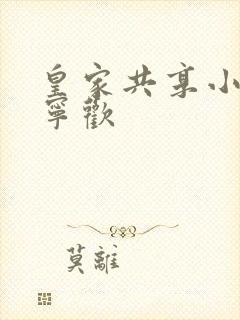 皇家共享小
寧歡
莫離